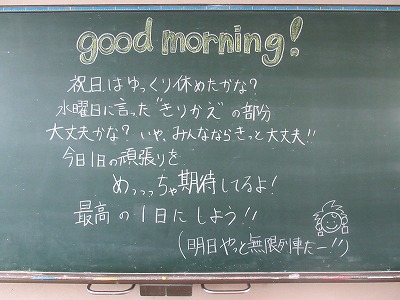 good morning!
祝日はゆっくり休めたかな?
水曜日に言った"きりかえ"の部分
大丈夫かな? いや、みんなならきっと大丈夫!!
今日1日の頑張りを
めっっっちゃ期待してるよ!
最高の1日にしよう!!
(明日やっと無限列車だー!!)